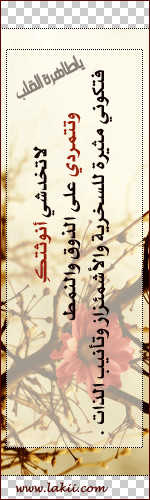 ياطاهرة القلب
لاتخدشي أنوثتك
وتتمردي على الذوق والنمط
فتكوني مثيرة للسخرية والأشمئزاز وتأنيب الذات .
www.lakii.com